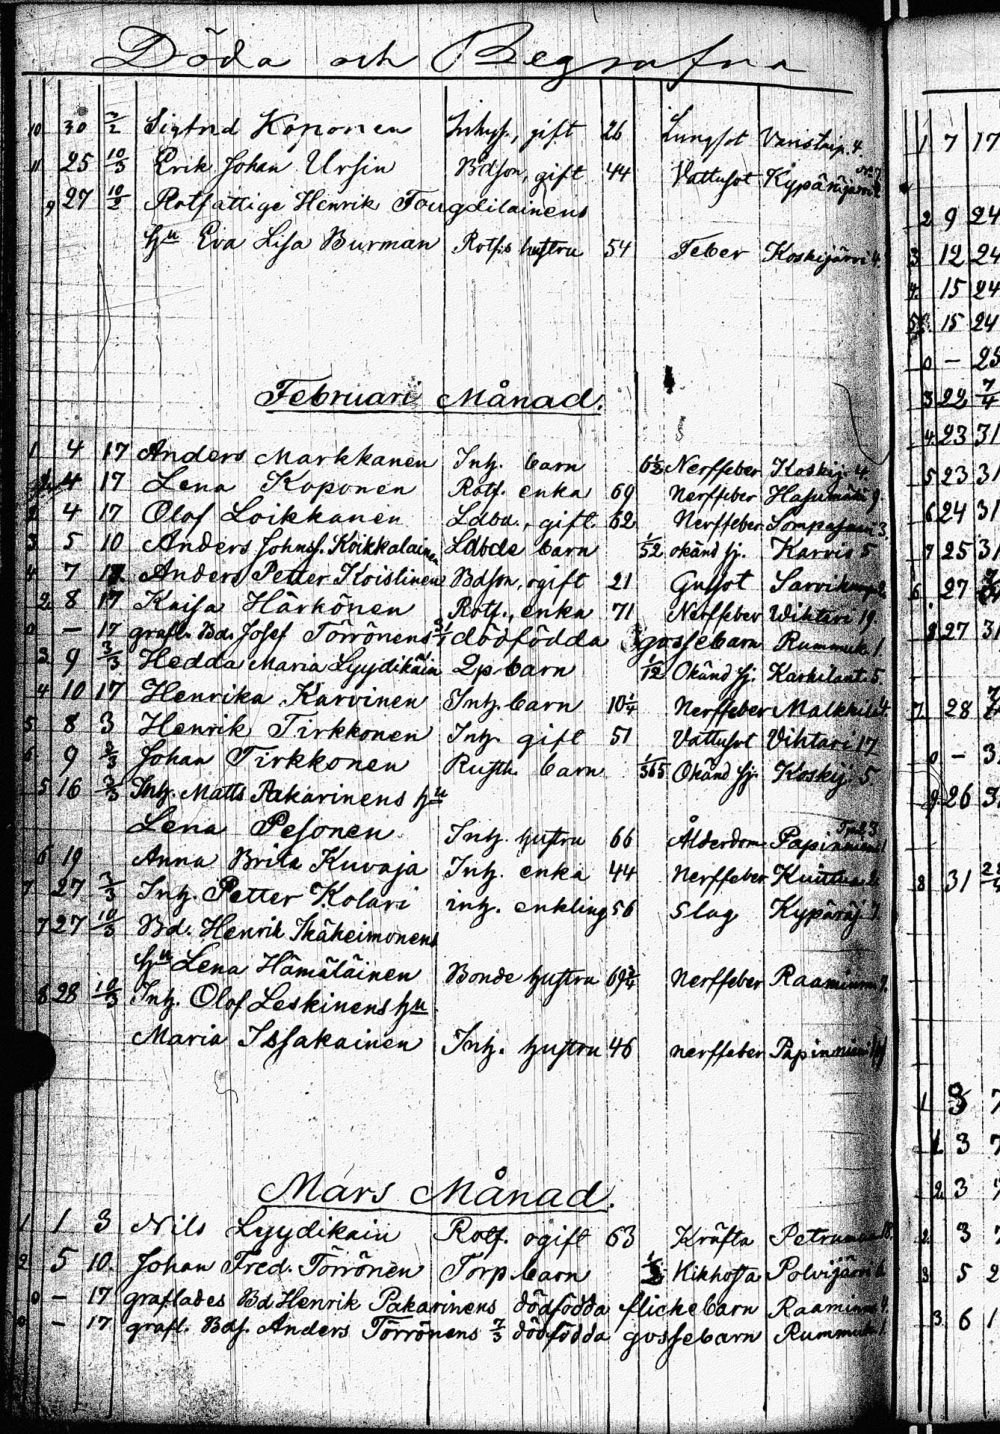 Döda och Begrafna
10 30 7/2 Sigfrid Koponen Inhys., gift 26 Lungsot Varistaip. 4.
11 25 10/3 Erik Johan Ursin Bdson, gift 44 Vattusot Kypäräjärvi
9 27 10/2 Rotfattige Henrik
hu Eva Lisa Burman Rotf:s hustru 54 Feber Koskijärvi 4.
Februari Månad.
1 4 17 Anders Markkanen Inh. barn 6 1/2 Nerffeber Koskij. 4.
4 17 Lena Koponen Rotf. enka 69 Nerffeber Hasumäki 9.
2 4 17 Olof Loikkanen Ldbd., gift. 62 Nerffeber Sompasaari 3.
3 5 10 Anders Johnss. Koikkalainen Ldbde barn 1/52 okänd sj. Karvio 5
4 7 17 Anders Petter Koistinen Bdson, ogift 21 Gulsot Sarvikump.
2 8 17 Kaisa Härkönen Rotf., enka 71 Nerffeber Wihtari 19.
0 — 17 grafl. Bd. Josef Törrönens dödfödda gossebarn Rummuk. 1.
3 9 3/3 Hedda Maria Lyydikäin Lp barn 1/12 Okänd sj. Karhilant. 5.
4 10 17 Henrika Karvinen Inh. barn 10 1/4 Nerffeber Malkkila 4.
5 8 3 Henrik Tirkkonen Inh. gift 51 Vattusot Vihtari 17
6 9 3/3 Johan Tirkkonen Rusth. barn 1/365 Okänd sj. Koskij. 5.
5 16 3/3 Inh. Matts Pakarinens hu
Lena Pesonen Inh. hustru 66 Ålderdom Papinniemi
6 19 Anna Brita Kuvaja Inh. enka 44 Nerffeber Kuittua 2.
7 27 3/3 Inh. Petter Kolari inh. enkling 56 Slag Kypäräj. 7.
7 27 10/3 Bd. Henrik Ikäheimonens
hu Lena Hämäläinen Bonde hustru 69 3/4 Nerffeber Raaminm. 9.
8 28 10/3 Inh. Olof Leskinens hu
Maria Issakainen Inh. hustru 46 nerffeber Papinniemi
Mars Månad.
1 1 3 Nils Lyydikain Rotf. ogift 63 Kräfta Petrumaa 18.
2 5 10. Johan Fred. Törrönen Torp barn 1/2 Kikhosta Polvijärvi
0 — 17 graflades Bd Henrik Pakarinens dödfödda flickebarn Raaminm. 4.
0 — 17 grafl. Bds. Anders Törrönens 7/3 dödfödda gossebarn Rummuk. 1.
1 7 17
2 9 24
3 12 24
4. 15 24
5. 15 24
0 — 25
3 22 7/4
4. 23 31
5 23 31
6 24 31
7 25 31
6. 27
8. 27 31
7. 28
0 — 3
9 26 3
8 31
1 3 7
1. 3 7
2. 3 7
2. 3 7
3. 5 2
3. 6 1